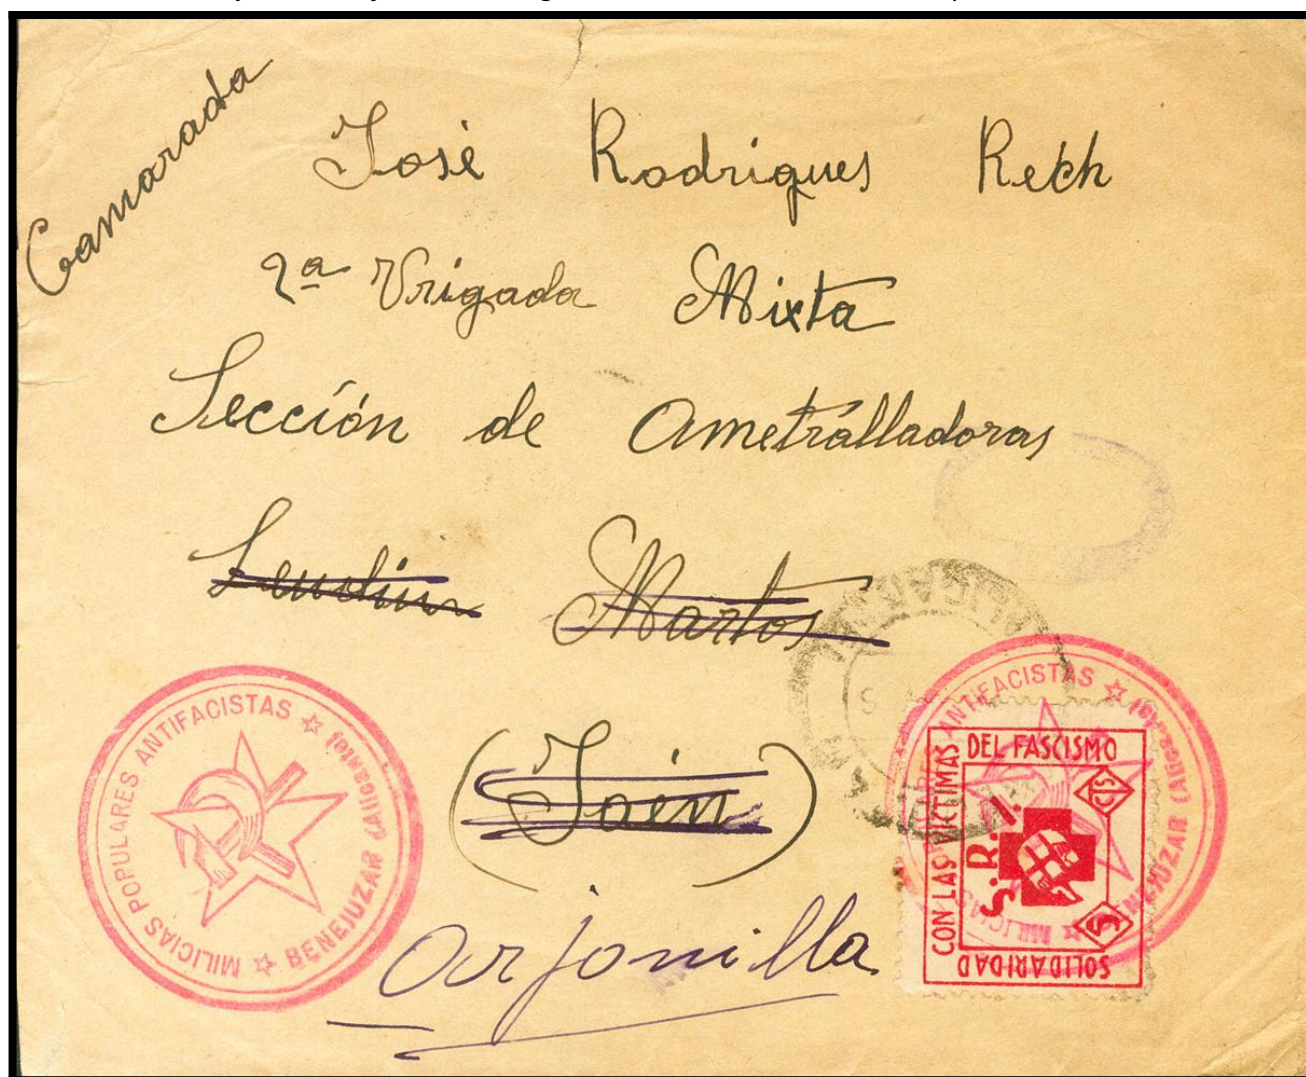 Camarada
José Rodrigues Rech
2ª Vrigada Mixta
Sección de Ametrálladoras
Martos
(Jaén)
Arjonilla
MILICIAS POPULARES ANTIFACISTAS ☆ BENEJUZAR (Alicante) ☆
MILICIAS ANTIFACISTAS ☆ BENEJUZAR (Alicante) ☆
SOLIDARIDAD CON LAS VICTIMAS DEL FASCISMO
S.R.I.
5 CTS